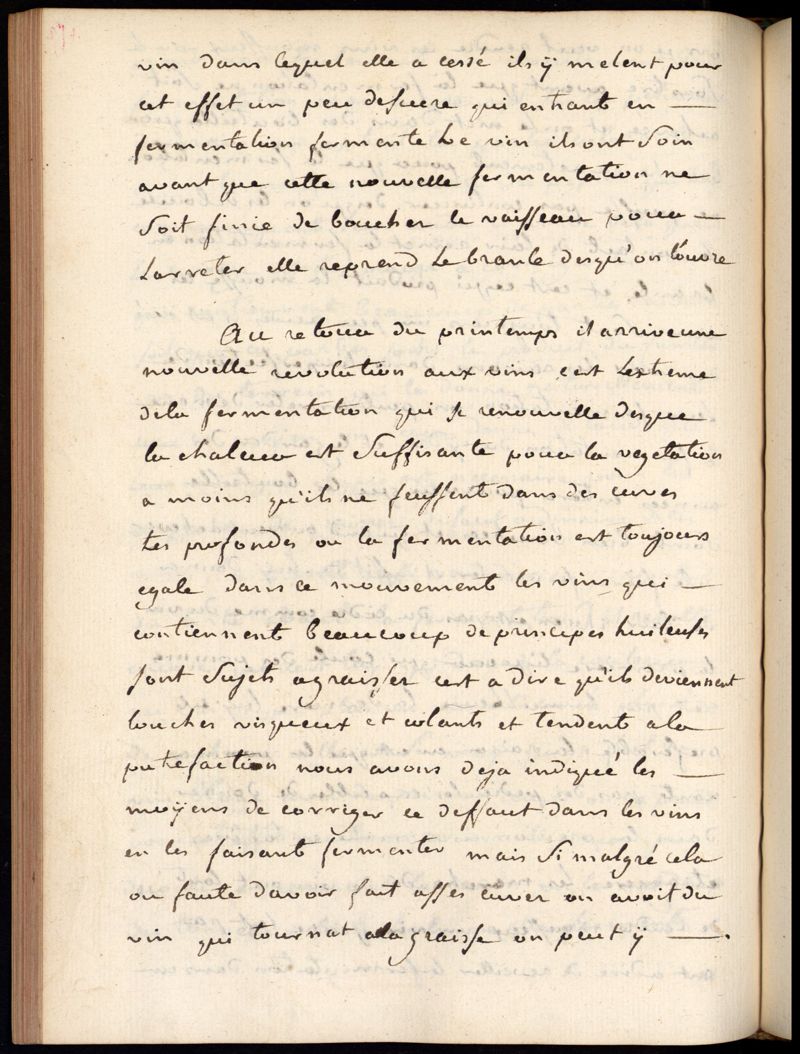 vin dans lequel elle a cessé ils ÿ melent pour
cet effet un peu de sucre qui entrant en —
fermentation fermente le vin ils ont soin
avant que cette nouvelle fermentation ne
soit finie de boucher le vaisseau pour —
larreter elle reprend le branle desqu'on louvre
Au retour du printemps il arrive une
nouvelle revolution aux vins cest lextreme
dela fermentation qui se renouvelle desque
la chaleur est suffisante pour la vegetation
a moins qu'ils ne fussent dans des cuves
tes profondes ou la fermentation est toujours
egale dans ce mouvement les vins qui —
contiennent beaucoup de principes huileuses
sont sujets agraisser cest a dire qu'ils deviennent
louches visqueux et colants et tendent ala
putrefaction nous avons deja indiqué les —
moÿens de corriger ce deffaut dans les vins
en les faisant fermenter mais si malgré cela
ou faute davoir fait asses cuver on avoit du
vin qui tournat ala graisse on peut ÿ —